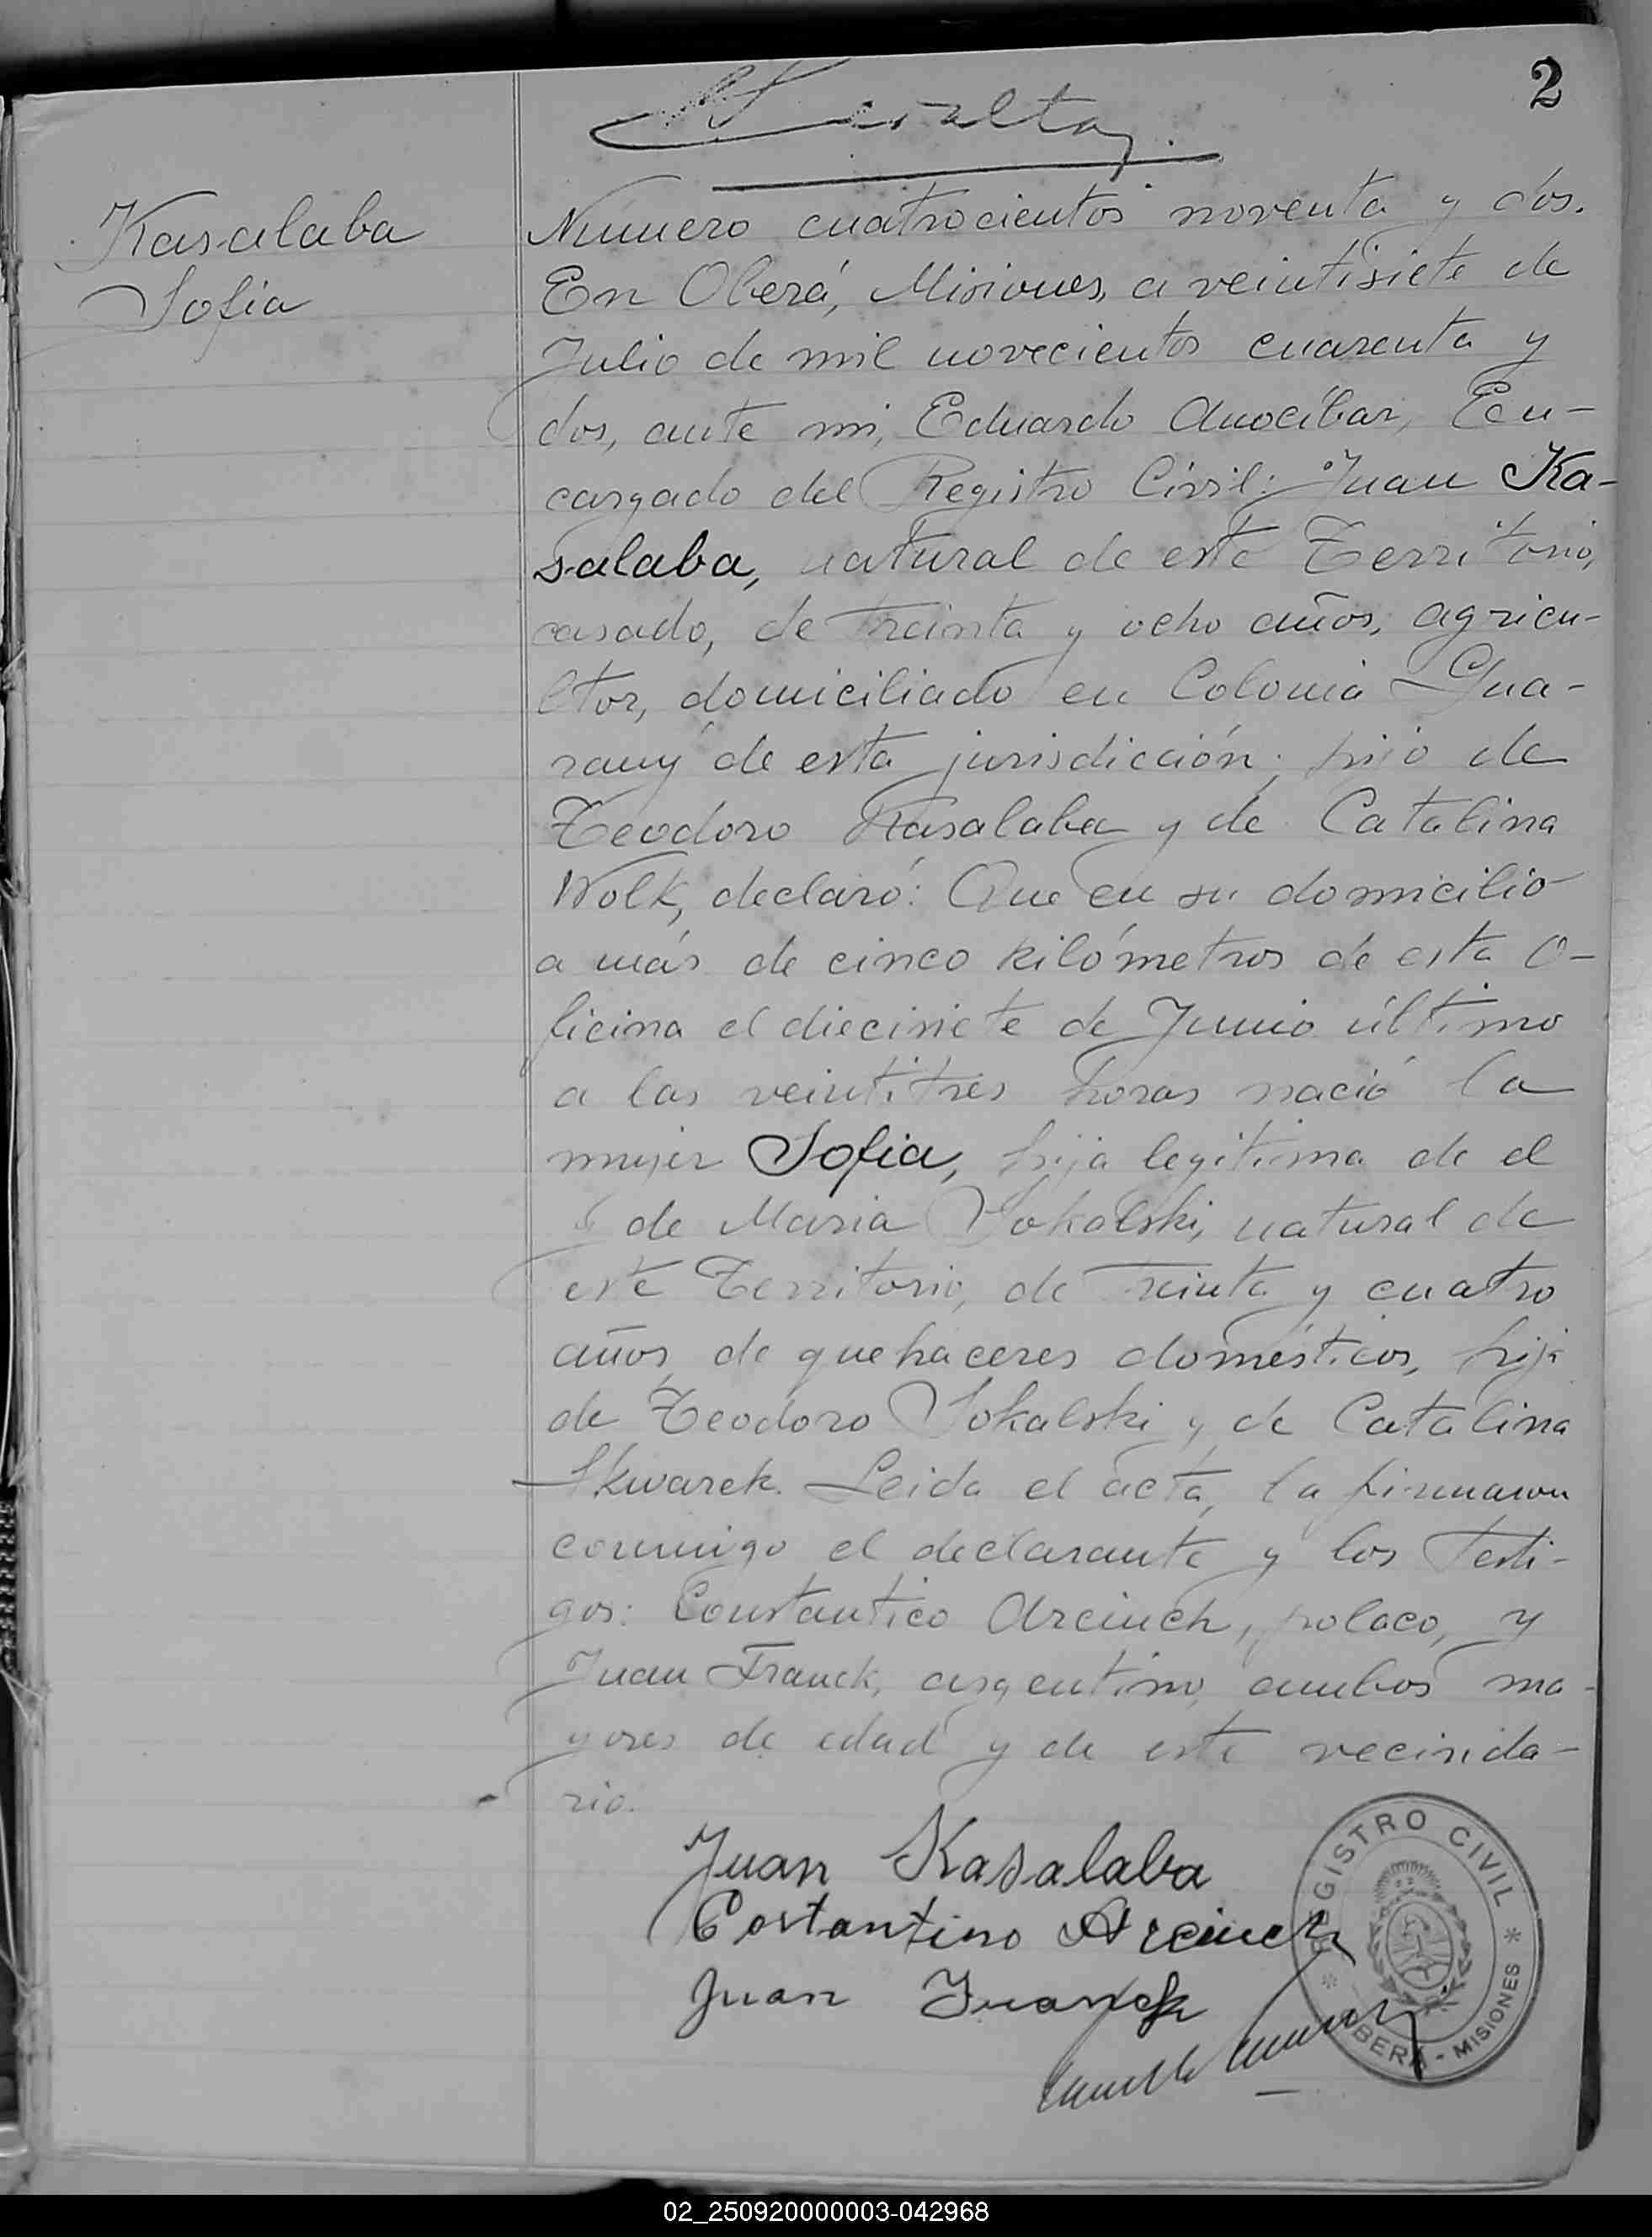 2
Kasalaba
Sofia
Número cuatrocientos noventa y dos.
En Oberá, Misiones, a veintisiete de
Julio de mil novecientos cuarenta y
dos, ante mi, Eduardo Anocíbar, En-
cargado del Registro Civil: Juan Ka-
salaba, natural de este Territorio,
casado, de treinta y ocho años, agricu-
ltor, domiciliado en Colonia Gua-
rany de esta jurisdicción; hijo de
Teodoro Kasalaba y de Catalina
Wolk, declaró: Que en su domicilio
a más de cinco kilómetros de esta O-
ficina el diecisiete de Junio último
a las veintitres horas nació la
mujer Sofia, hija legitima de el
y de Maria Sokalski, natural de
este Territorio, de treinta y cuatro
años, de quehaceres domésticos, hija
de Teodoro Sokalski y de Catalina
Skwarek. Leida el acta, la firmaron
conmigo el declarante y los testi-
gos: Constantico Arciuch, polaco, y
Juan Franck, argentino, ambos ma-
yores de edad y de este vecinda-
rio.
Juan Kasalaba
Costantino Arciuch
Juan Franck
REGISTRO CIVIL
OBERÁ - MISIONES
02_250920000003-042968